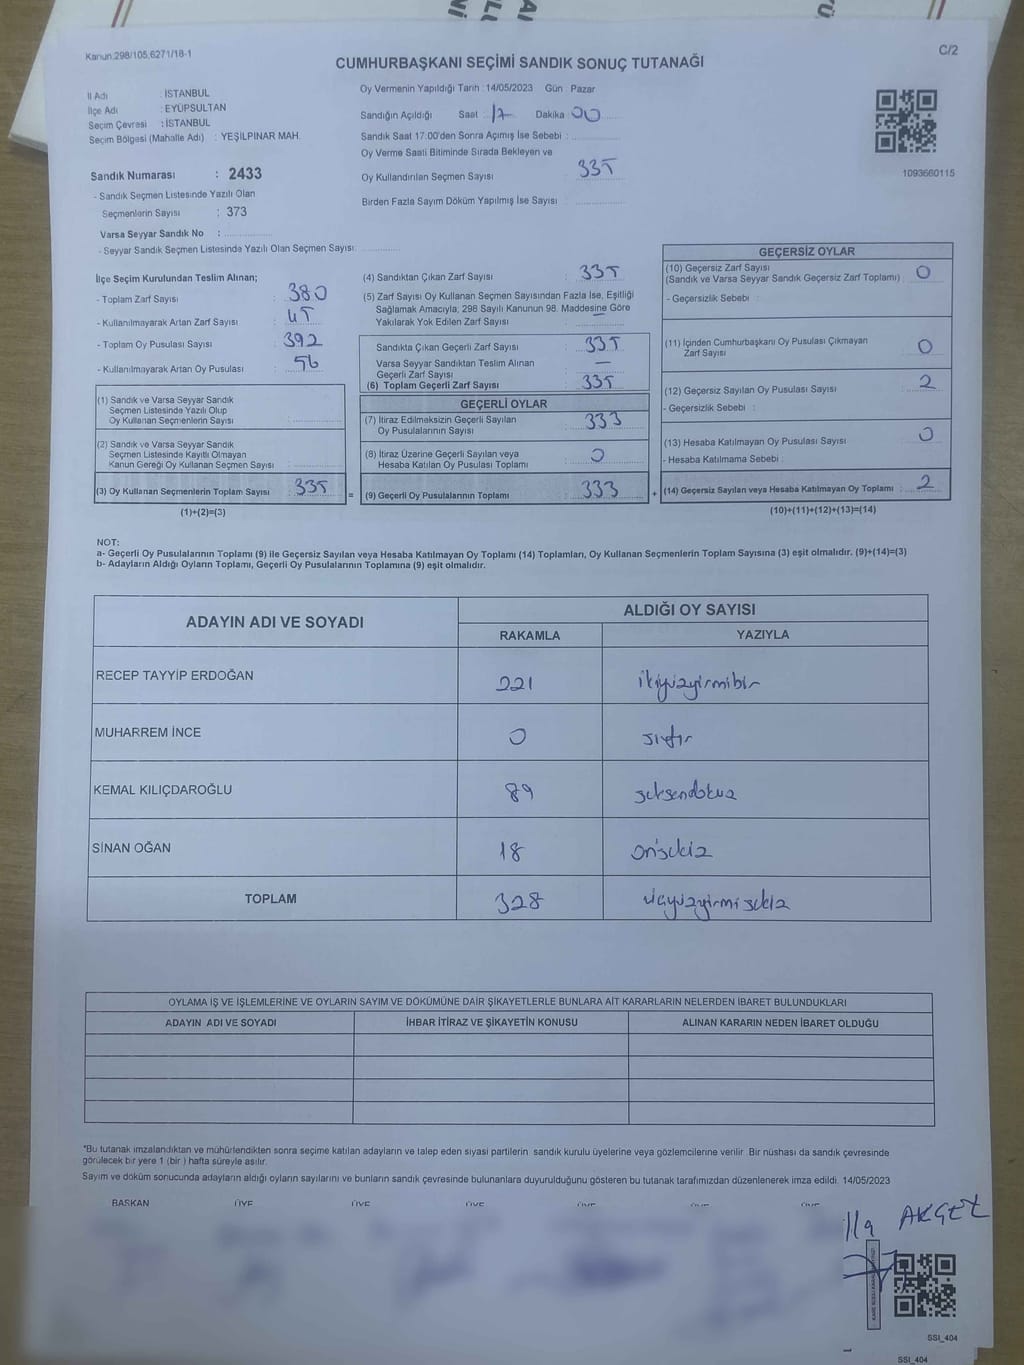 Kanun.298/105,6271/18-1
C/2
CUMHURBAŞKANI SEÇİMİ SANDIK SONUÇ TUTANAĞI
İl Adı : İSTANBUL
İlçe Adı : EYÜPSULTAN
Seçim Çevresi : İSTANBUL
Seçim Bölgesi (Mahalle Adı) : YEŞİLPINAR MAH.
Sandık Numarası : 2433
- Sandık Seçmen Listesinde Yazılı Olan
Seçmenlerin Sayısı : 373
Varsa Seyyar Sandık No :
- Seyyar Sandık Seçmen Listesinde Yazılı Olan Seçmen Sayısı:
Oy Vermenin Yapıldığı Tarih :14/05/2023 Gün Pazar
Sandığın Açıldığı Saat 17 Dakika 00
Sandık Saat 17.00'den Sonra Açımış İse Sebebi :
Oy Verme Saati Bitiminde Sırada Bekleyen ve
Oy Kullandırılan Seçmen Sayısı : 335
Birden Fazla Sayım Döküm Yapılmış İse Sayısı :
1093660115
İlçe Seçim Kurulundan Teslim Alınan;
- Toplam Zarf Sayısı : 380
- Kullanılmayarak Artan Zarf Sayısı : 45
- Toplam Oy Pusulası Sayısı : 392
- Kullanılmayarak Artan Oy Pusulası : 56
(1) Sandık ve Varsa Seyyar Sandık
Seçmen Listesinde Yazılı Olup
Oy Kullanan Seçmenlerin Sayısı :
(2) Sandık ve Varsa Seyyar Sandık
Seçmen Listesinde Kayıtlı Olmayan
Kanun Gereği Oy Kullanan Seçmen Sayısı :
(3) Oy Kullanan Seçmenlerin Toplam Sayısı : 335
(1)+(2)=(3)
(4) Sandıktan Çıkan Zarf Sayısı : 335
(5) Zarf Sayısı Oy Kullanan Seçmen Sayısından Fazla İse, Eşitliği
Sağlamak Amacıyla; 298 Sayılı Kanunun 98. Maddesine Göre
Yakılarak Yok Edilen Zarf Sayısı : —
Sandıkta Çıkan Geçerli Zarf Sayısı : 335
Varsa Seyyar Sandıktan Teslim Alınan
Geçerli Zarf Sayısı : —
(6) Toplam Geçerli Zarf Sayısı : 335
GEÇERLİ OYLAR
(7) İtiraz Edilmeksizin Geçerli Sayılan
Oy Pusulalarının Sayısı : 333
(8) İtiraz Üzerine Geçerli Sayılan veya
Hesaba Katılan Oy Pusulası Toplamı : 0
= (9) Geçerli Oy Pusulalarının Toplamı : 333 +
GEÇERSİZ OYLAR
(10) Geçersiz Zarf Sayısı
(Sandık ve Varsa Seyyar Sandık Geçersiz Zarf Toplamı) : 0
- Geçersizlik Sebebi :
(11) İçinden Cumhurbaşkanı Oy Pusulası Çıkmayan
Zarf Sayısı : 0
(12) Geçersiz Sayılan Oy Pusulası Sayısı : 2
- Geçersizlik Sebebi :
(13) Hesaba Katılmayan Oy Pusulası Sayısı : 0
- Hesaba Katılmama Sebebi :
(14) Geçersiz Sayılan veya Hesaba Katılmayan Oy Toplamı : 2
(10)+(11)+(12)+(13)=(14)
NOT:
a- Geçerli Oy Pusulalarının Toplamı (9) ile Geçersiz Sayılan veya Hesaba Katılmayan Oy Toplamı (14) Toplamları, Oy Kullanan Seçmenlerin Toplam Sayısına (3) eşit olmalıdır. (9)+(14)=(3)
b- Adayların Aldığı Oyların Toplamı, Geçerli Oy Pusulalarının Toplamına (9) eşit olmalıdır.
ADAYIN ADI VE SOYADI ALDIĞI OY SAYISI
RAKAMLA YAZIYLA
RECEP TAYYİP ERDOĞAN 221 ikiyüzyirmibir
MUHARREM İNCE 0 sıfır
KEMAL KILIÇDAROĞLU 89 seksendokuz
SİNAN OĞAN 18 onsekiz
TOPLAM 328 üçyüzyirmisekiz
OYLAMA İŞ VE İŞLEMLERİNE VE OYLARIN SAYIM VE DÖKÜMÜNE DAİR ŞİKAYETLERLE BUNLARA AİT KARARLARIN NELERDEN İBARET BULUNDUKLARI
ADAYIN ADI VE SOYADI İHBAR İTİRAZ VE ŞİKAYETİN KONUSU ALINAN KARARIN NEDEN İBARET OLDUĞU
*Bu tutanak imzalandıktan ve mühürlendikten sonra seçime katılan adayların ve talep eden siyasi partilerin sandık kurulu üyelerine veya gözlemcilerine verilir. Bir nüshası da sandık çevresinde
görülecek bir yere 1 (bir) hafta süreyle asılır.
Sayım ve döküm sonucunda adayların aldığı oyların sayılarını ve bunların sandık çevresinde bulunanlara duyurulduğunu gösteren bu tutanak tarafımızdan düzenlenerek imza edildi. 14/05/2023
BAŞKAN ÜYE ÜYE ÜYE ÜYE ÜYE ÜYE
SSI_404
SSI_404